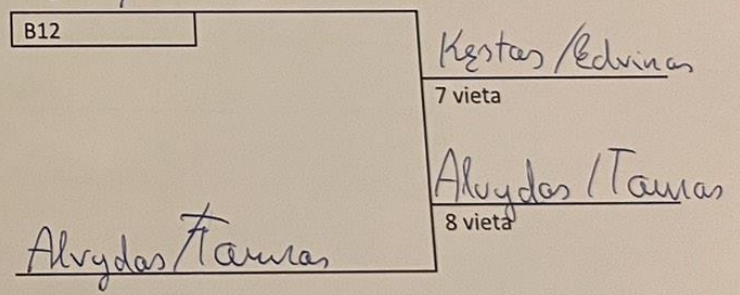 B12
Kęstas / Edvinas
7 vieta
Alvydas / Tauras
8 vieta
Alvydas / Tauras